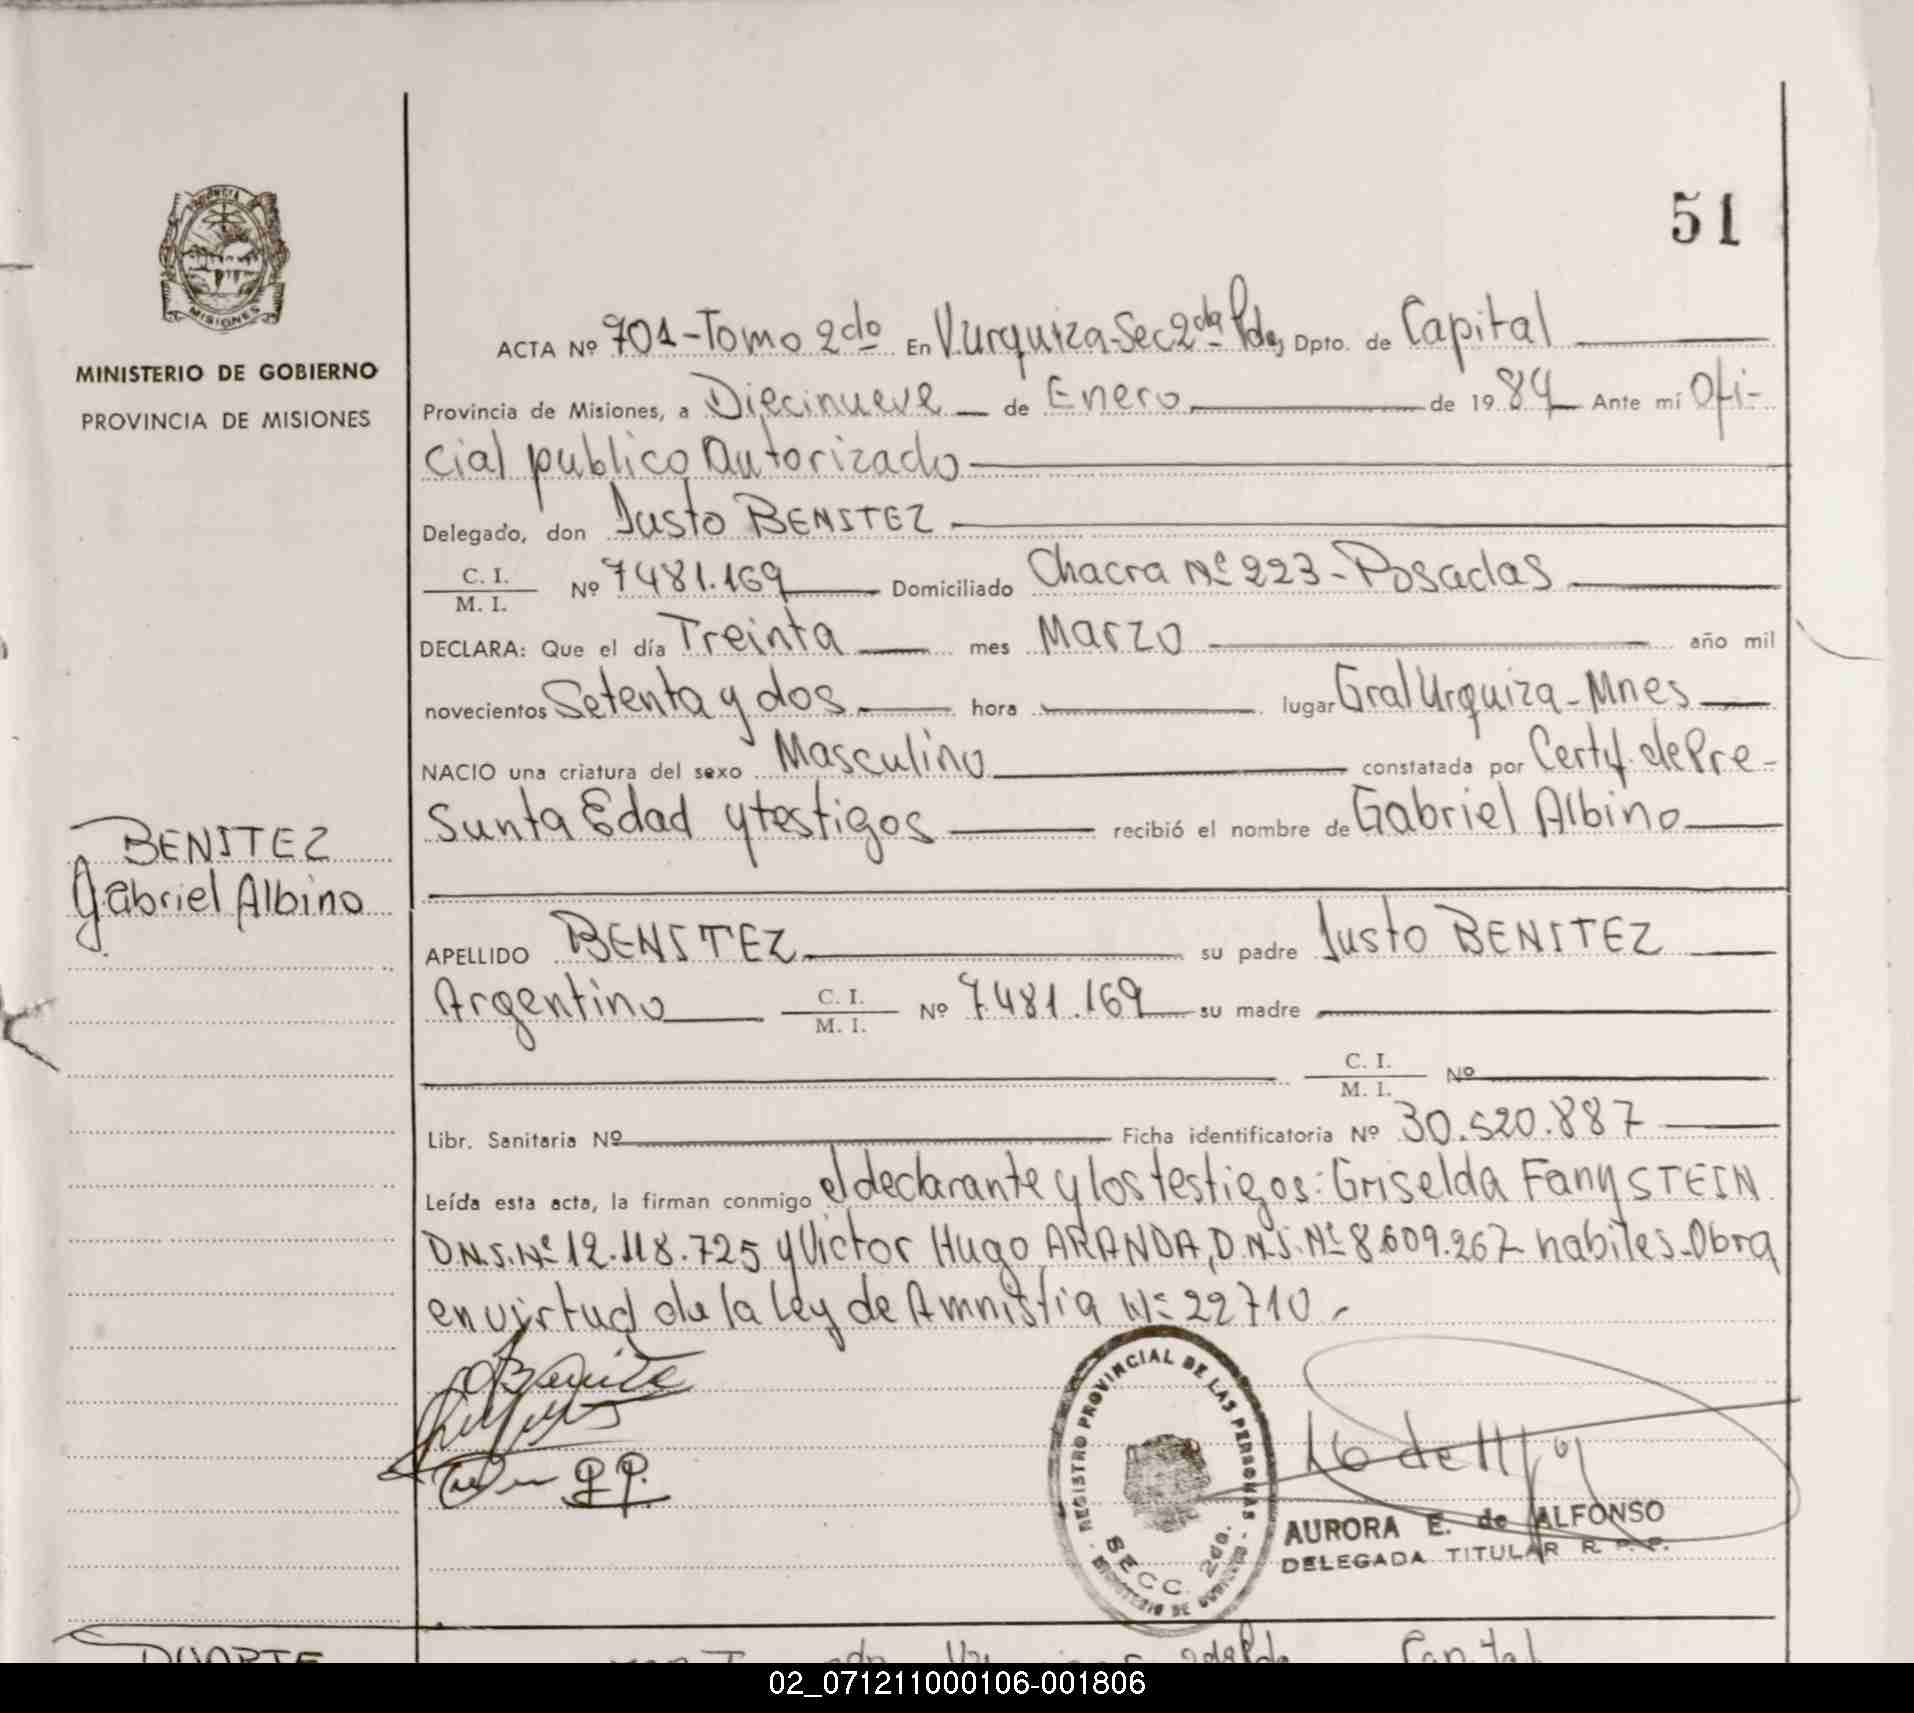 51
PROVINCIA DE
MISIONES
MINISTERIO DE GOBIERNO
PROVINCIA DE MISIONES
BENITEZ
Gabriel Albino
ACTA Nº 701-Tomo 2do En V.Urquiza-Sec 2da Pdas, Dpto. de Capital
Provincia de Misiones, a Diecinueve de Enero de 1984 Ante mí Ofi-
cial publico Autorizado
Delegado, don Justo BENITEZ
C. I.
M. I. Nº 7481.169 Domiciliado Chacra Nº 223-Posadas
DECLARA: Que el día Treinta mes Marzo año mil
novecientos Setenta y dos hora lugar Gral Urquiza-Mnes
NACIO una criatura del sexo Masculino constatada por Certif. de Pre-
sunta Edad y testigos recibió el nombre de Gabriel Albino
APELLIDO BENITEZ su padre Justo BENITEZ
Argentino C. I.
M. I. Nº 7.481.169 su madre
C. I.
M. I. Nº
Libr. Sanitaria Nº Ficha identificatoria Nº 30.520.887
Leída esta acta, la firman conmigo el declarante y los testigos: Griselda Fany STEIN
D.N.I. Nº 12.118.725 y Victor Hugo ARANDA, D.N.I. Nº 8.609.267 habiles-Obra
en virtud de la Ley de Amnistia Nº 22710.-
REGISTRO PROVINCIAL DE LAS PERSONAS - MINISTERIO DE GOBIERNO -
SECC. 2da.
AURORA E. de ALFONSO
DELEGADA TITULAR R. P. P.
DUARTE
Capital
02_071211000106-001806